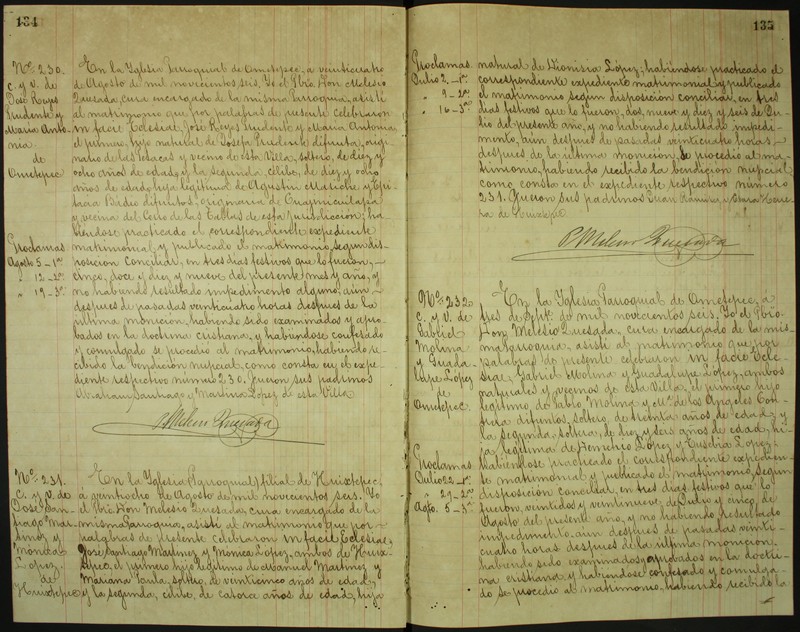 134
Nº 230.
C. y V. de
José Reyes
Prudente y
María Anto-
nia
de
Ometepec
Proclamas
Agosto 5-1ª
" 12-2ª
" 19-3ª
En la Yglesia Parroquial de Ometepec, a veinticuatro
de Agosto de mil novecientos seis. Yo el Pbro. Don Melesio
Quesada, cura encargado de la misma Parroquia, asistí
al matrimonio que por palabras de presente celebraron
in facie Eclesiae, José Reyes Prudente y Maria Antonia
el primero, hijo natural de Josefa Prudente difunta, orig-
inario de las Petacas y vecino de esta Villa, soltero, de diez y
ocho años de edad, y la segunda célibe, de diez y ocho
años de edad, hija legítima de Agustin Mariche y
difuntos, originaria de
y vecina del Cerro de las Tablas de esta jurisdiccion; ha-
biendose practicado el correspondiente expediente
matrimonial y publicado el matrimonio, segun dis-
posicion Conciliar, en tres dias festivos que lo fueron,
cinco, doce y diez y nueve del presente mes y año, y
no habiendo resultado impedimento alguno, aun
despues de pasadas veinticuatro horas despues de la
última monicion, habiendo sido examinados y apro-
bados en la doctrina cristiana, y habiéndose confesado
y comulgado se procedió al matrimonio, habiendo re-
cibido la bendicion nupcial, como consta en el expe-
diente respectivo número 230. Fueron sus padrinos
Abraham Santiago y Martina López de esta Villa
P. Melesio Quesada
Nº 231.
C. y V. de
José San-
tiago Mar-
tinez y
Monica
López
de
Huixtepec
En la Yglesia Parroquial filial de Huixtepec,
á veintiocho de Agosto de mil novecientos seis. Yo
el Pbro. Don Melesio Quesada, cura encargado de la
misma Parroquia, asistí al matrimonio que por
palabras de presente celebraron in facie Eclesiae,
José Santiago Martinez y Monica López, ambos de Huix-
tepec, el primero hijo legítimo de Manuel Martinez y
Mariana Paula, soltero, de veinticinco años de edad,
y la segunda, célibe, de catorce años de edad, hija
135
Proclamas.
Julio 2.-1ª
" 9-2ª
" 16-3ª
natural de Dionisia López; habiéndose practicado el
correspondiente expediente matrimonial y publicado
el matrimonio segun disposicion conciliar, en tres
dias festivos que lo fueron, dos, nueve y diez y seis de Ju-
lio del presente año, y no habiendo resultado impedi-
mento, aun despues de pasadas veinticuatro horas
despues de la última monicion, se procedió al ma-
trimonio, habiendo recibido la bendicion nupcial,
como consta en el expediente respectivo número
231. Fueron sus padrinos Juan Ramirez y Maria
de Huixtepec
P. Melesio Quesada
Nº 232.
C. y V. de
Gabriel
Molina
y Guada-
lupe López
de
Ometepec
Proclamas
Julio 22-1ª
" 29-2ª
Agto. 5-3ª
En la Yglesia Parroquial de Ometepec, a
tres de Sptbe. de mil novecientos seis. Yo el Pbro.
Don Melesio Quesada, cura encargado de la mis-
ma parroquia, asistí al matrimonio que por
palabras de presente celebraron in facie Ecle-
siae, Gabriel Molina y Guadalupe López, ambos
naturales y vecinos de esta Villa, el primero hijo
legítimo de Pablo Molina y Mª de los Angeles
difuntos, soltero, de treinta años de edad, y
la segunda, soltera, de diez y seis años de edad, hi-
ja legítima de Demetrio López y Eusebia López;
habiéndose practicado el correspondiente expedien-
te matrimonial y publicado el matrimonio, segun
disposicion conciliar, en tres dias festivos que lo
fueron, veintidos y veintinueve de Julio y cinco de
Agosto del presente año, y no habiendo resultado
impedimento, aun despues de pasadas veinti-
cuatro horas despues de la última monicion,
habiendo sido examinados y aprobados en la doctri-
na cristiana y habiendose confesado y comulga-
do se procedió al matrimonio, habiendo recibido la